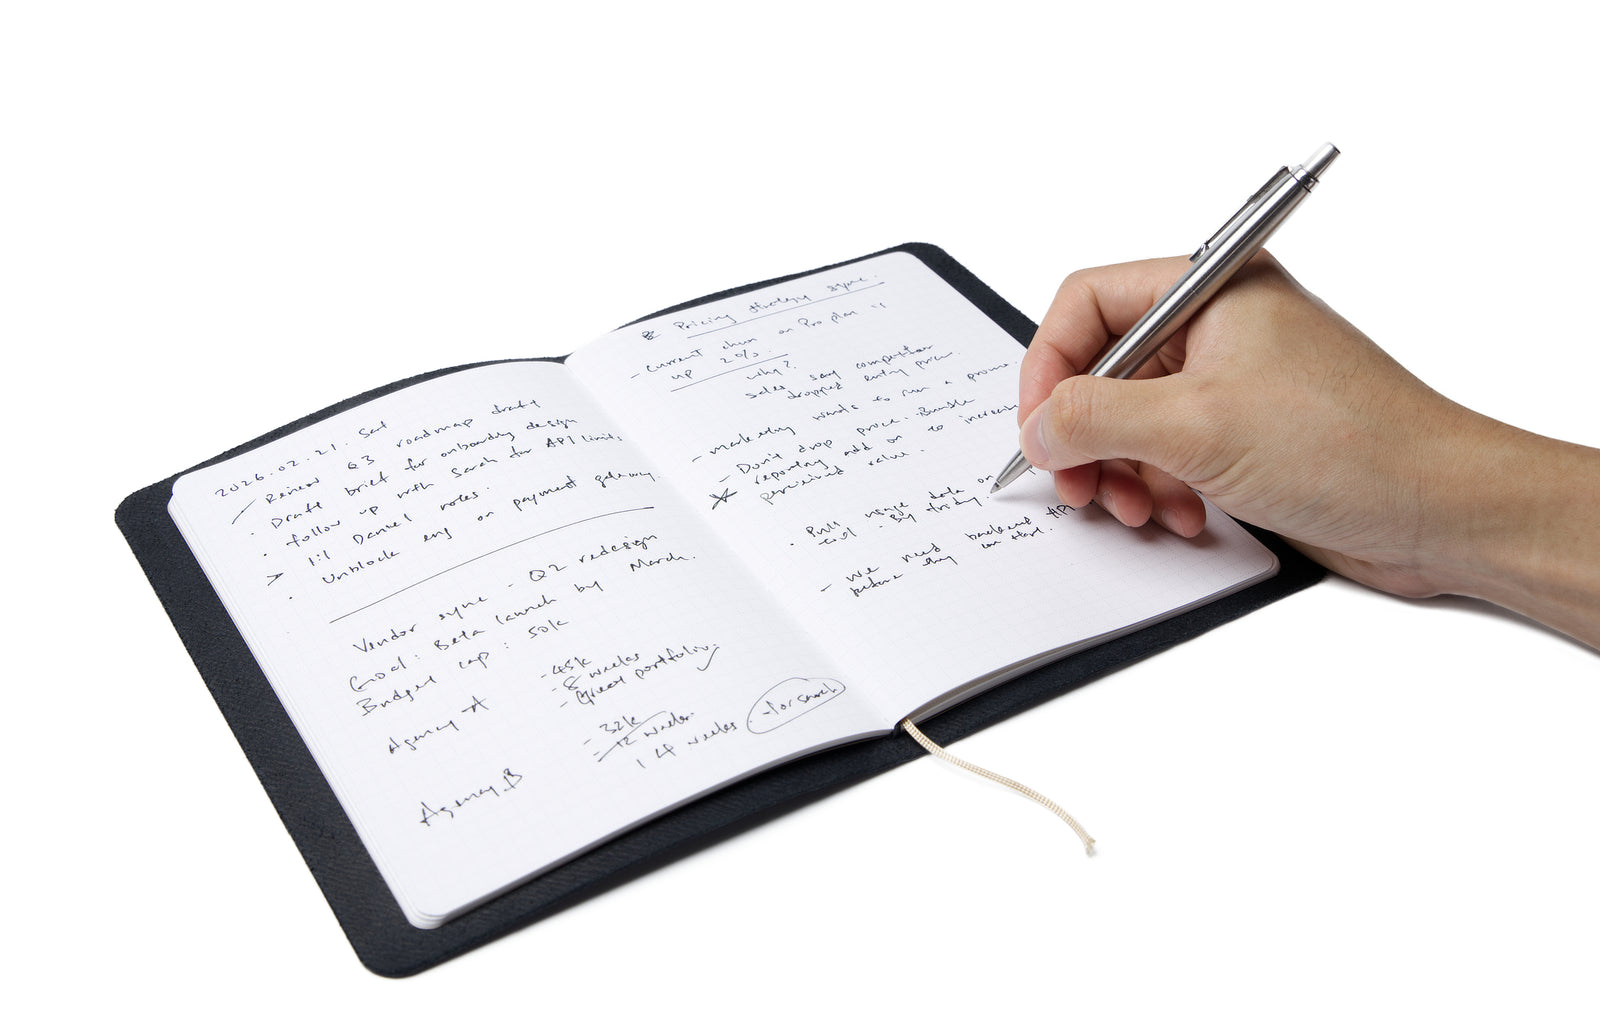 2026.02.21. Sat
Review Q3 roadmap draft
Draft brief for onboarding design
follow up with Sarah for API limits.
1:1 Daniel notes.
Unblock eng on payment gateway.
Vendor sync - Q2 redesign
Goal: Beta launch by March.
Budget cap: 50k
Agency A
- 45k
- 8 weeks
- Great portfolio.
Agency B
- 32k
- 12 weeks.
14 weeks
Pricing strategy sync.
- Current churn on Pro plan is
up 2%.
why?
Sales say competitor
dropped entry price.
- marketing wants to run a promo.
- Don't drop price. Bundle
reporting add on to increase
perceived value.
· Pull usage data on
tool - By friday.
- we need backend API
before they can start.